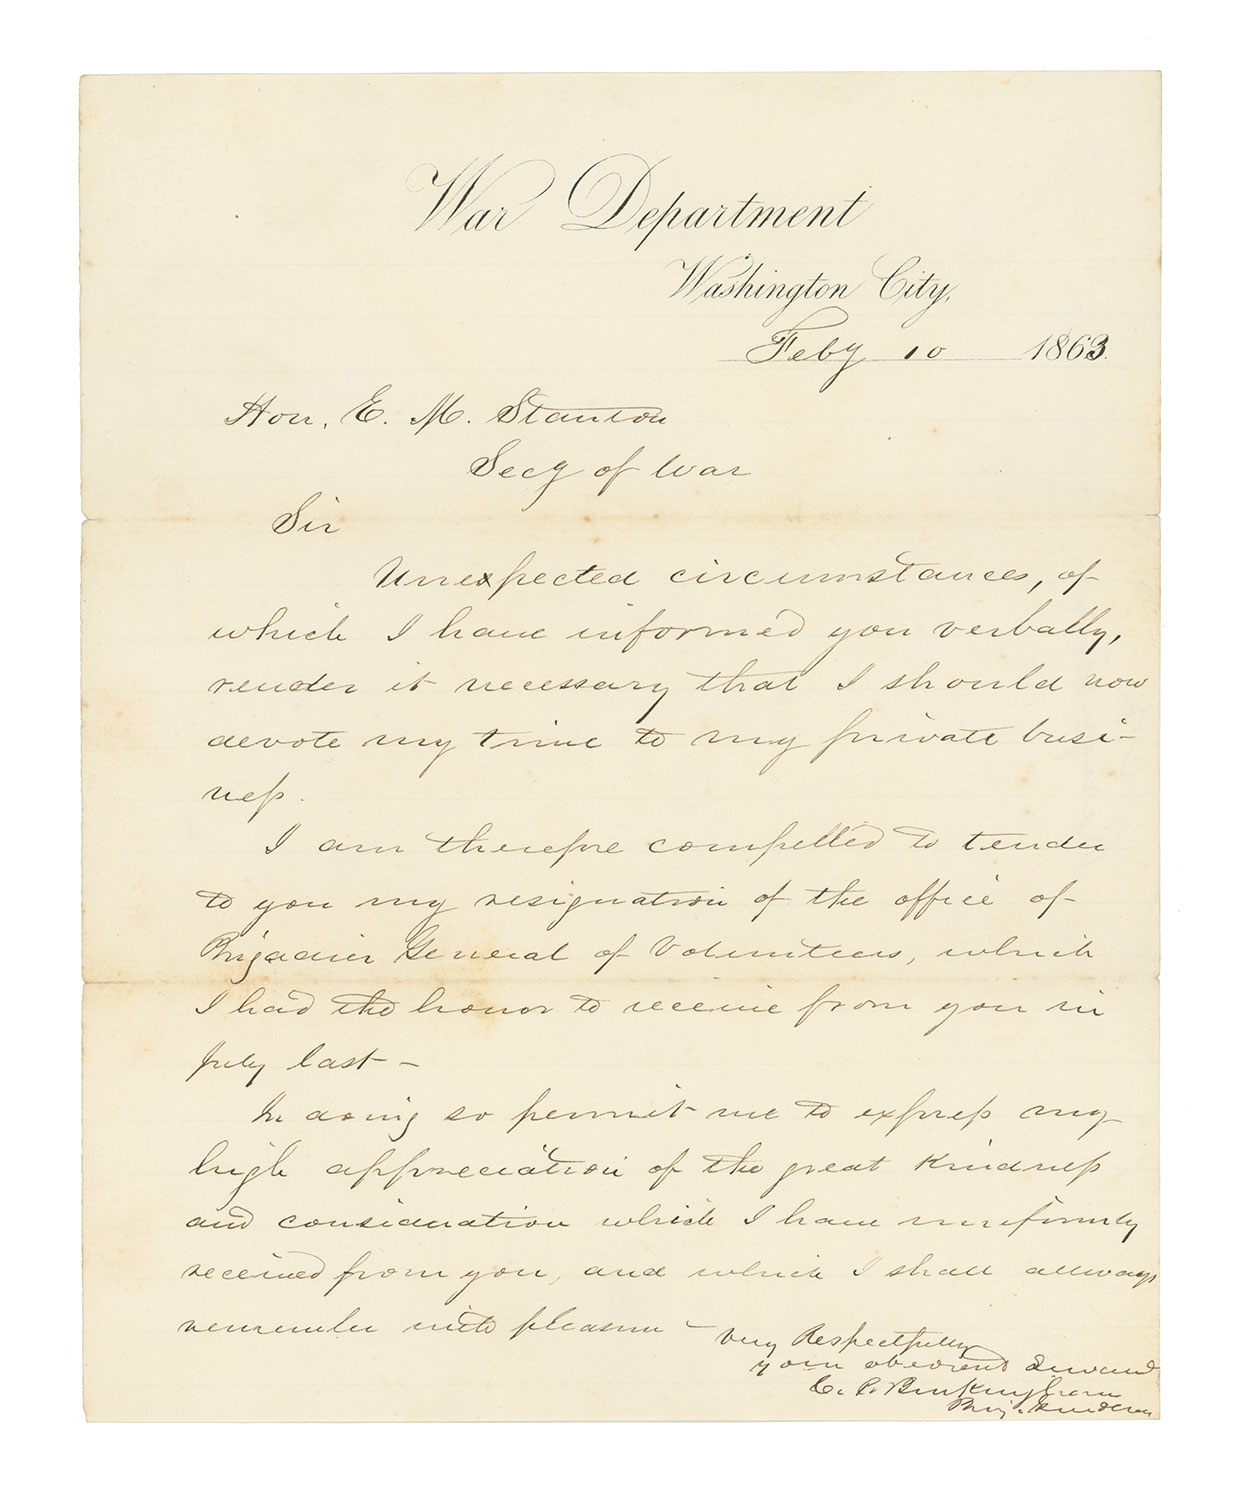 War Department
Washington City,
Feby 10 1863.
Hon. E. M. Stanton
Secy of War
Sir
Unexpected circumstances, of
which I have informed you verbally,
render it necessary that I should now
devote my time to my private busi-
ness.
I am therefore compelled to tender
to you my resignation of the office of
Brigadier General of Volunteers, which
I had the honor to receive from you in
July last -
In doing so permit me to express my
high appreciation of the great kindness
and consideration which I have uniformly
received from you, and which I shall allways
remember with pleasure -
Very Respectfully
your obedient Servant
C. P. Buckingham
Brig. Genl